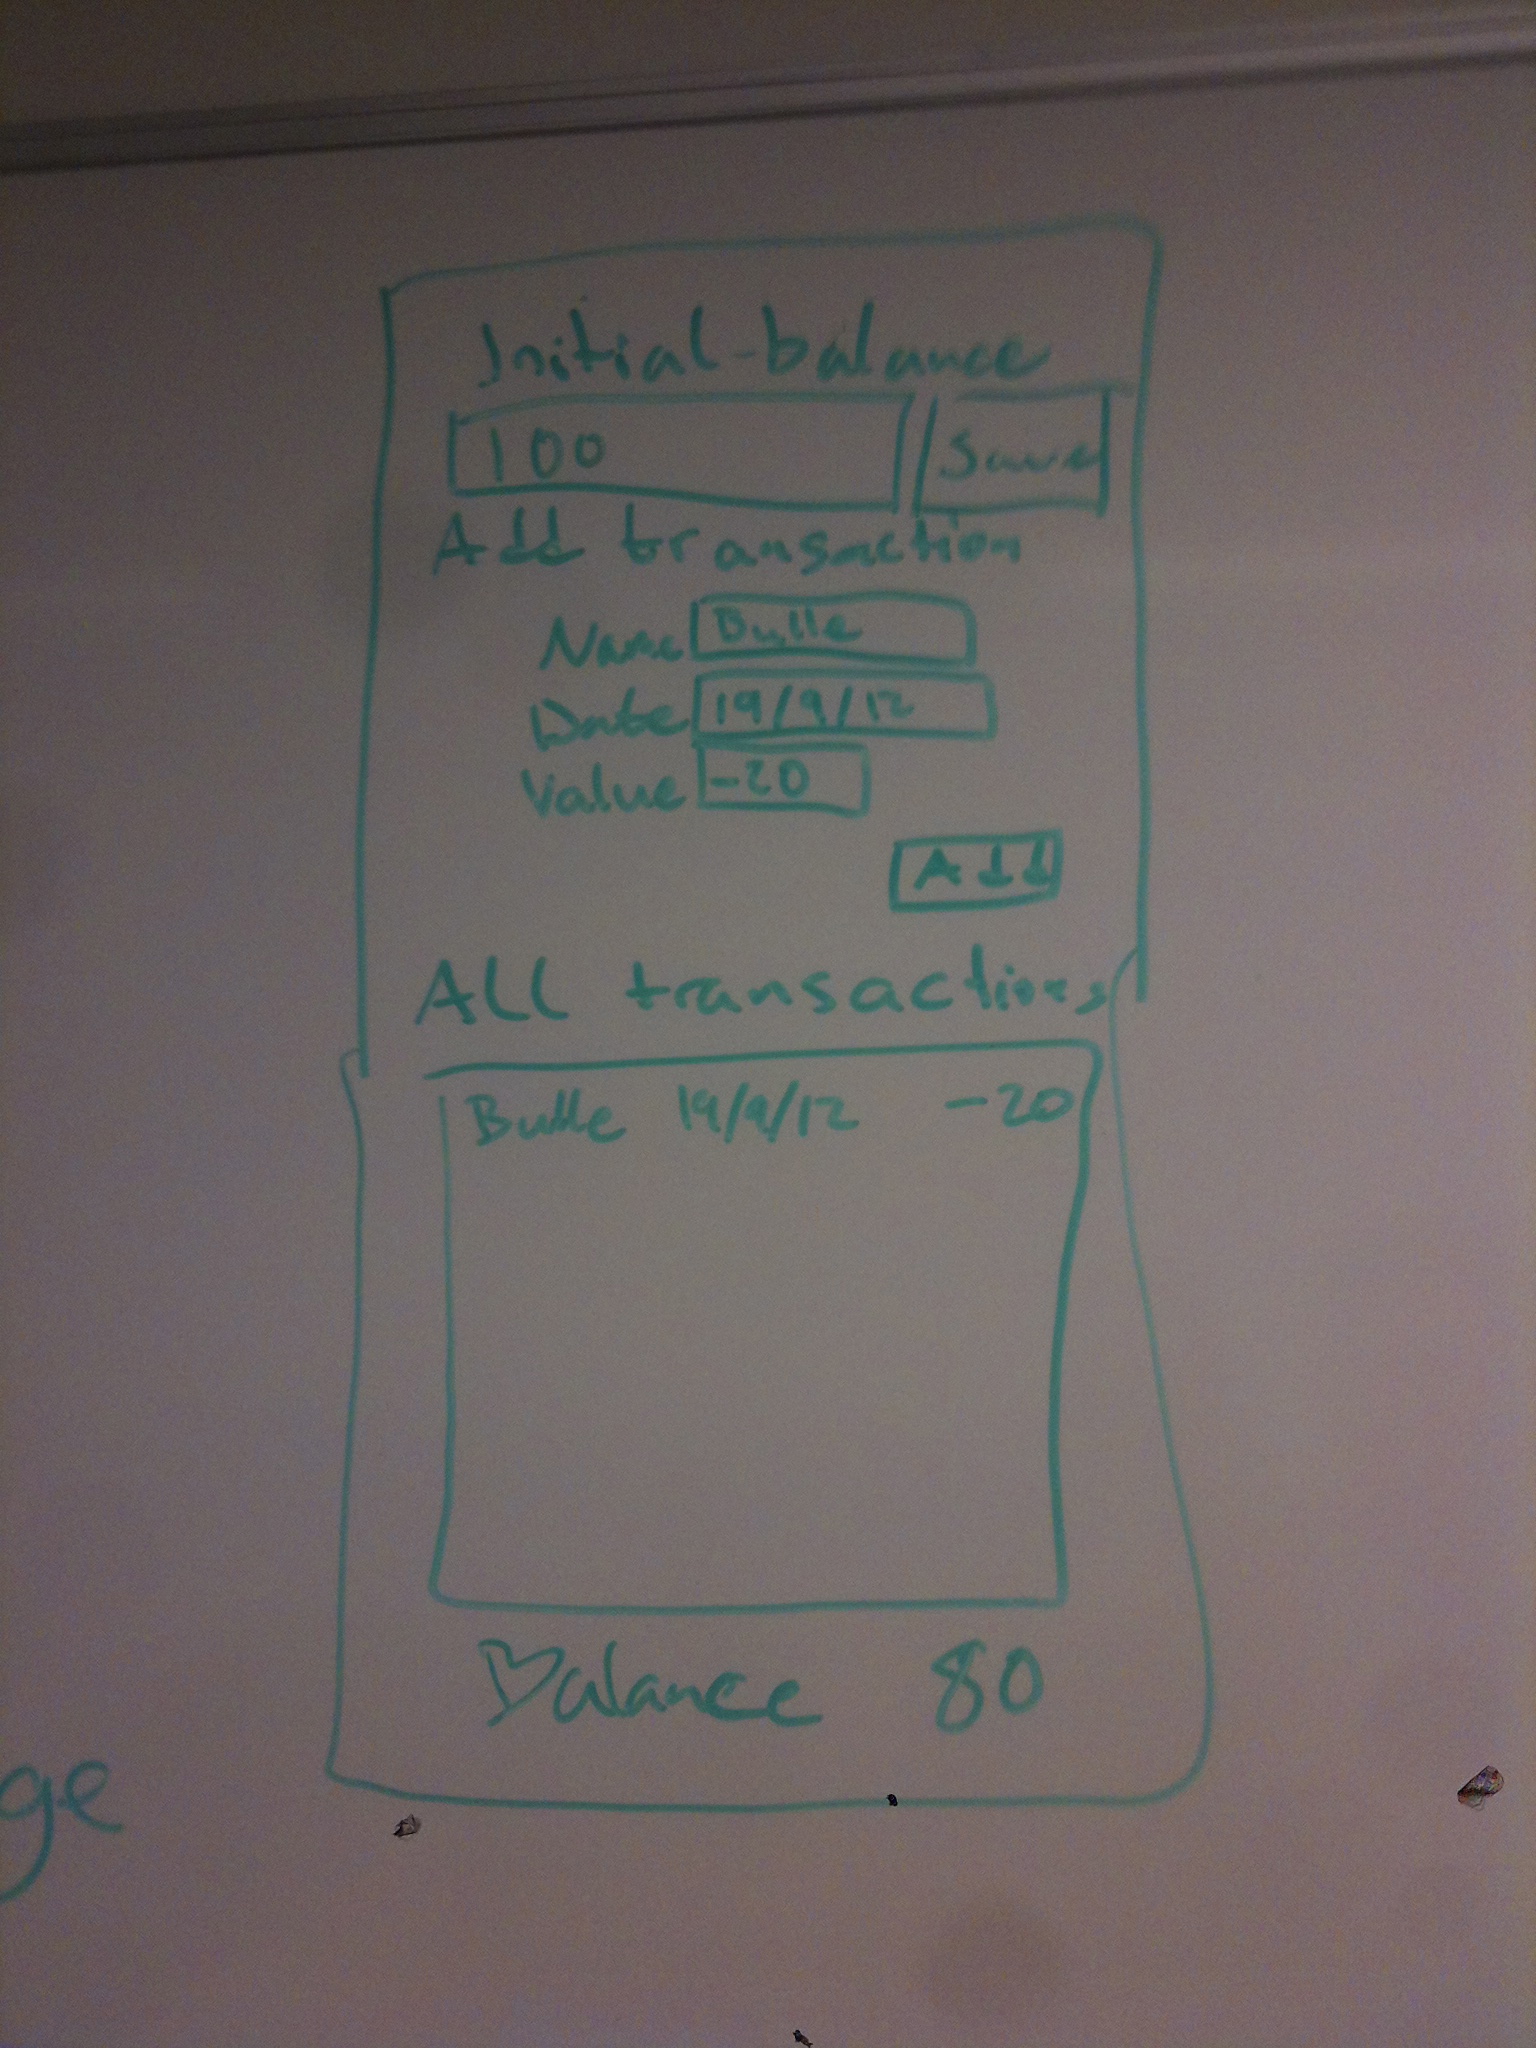 Initial-balance
100 Save
Add transaction
Name Bulle
Date 19/9/12
Value -20
Add
ALL transactions
Bulle 19/9/12 -20
Balance 80
ge